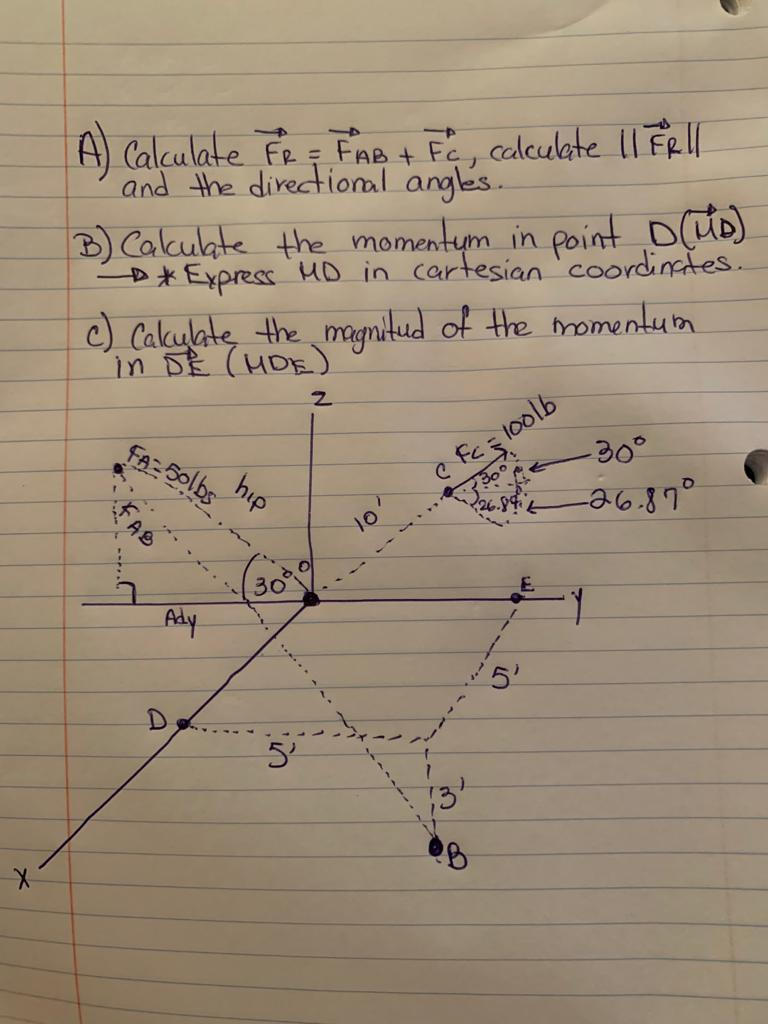 A) Calculate FR = FAB + FC, calculate ||FR||
and the directional angles.
B) Calculate the momentum in point D(MD)
→ * Express MD in cartesian coordinates.
C) Calculate the magnitud of the momentum
in DE (MDE)
Z
FA=50lbs
hip
FAB
30°
O
Ady
10'
C
FC = 100lb
30°
26.87°
30°
26.87°
E
y
5'
D
5'
3'
B
X